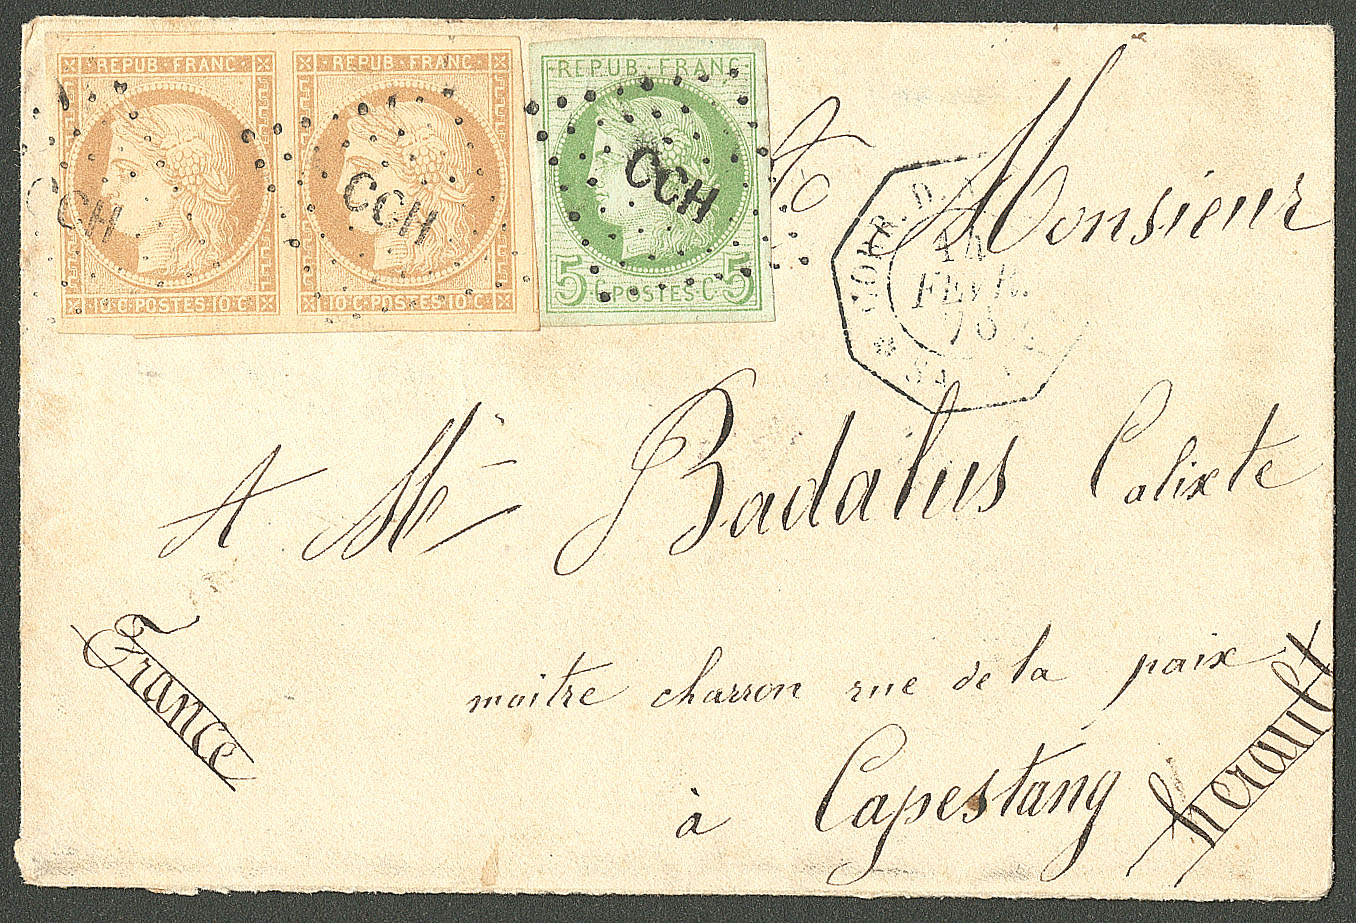 REPUB·FRANC·
10·C·POSTES·10·C
CCH
REPUB·FRANC·
10·C·POSTES·10·C
CCH
REPUB·FRANC
5 C·POSTES·C 5
CCH
A Monsieur
CORR. D. A
FEVR.
SA
A Mr Badalus Calixte
maitre charron rue de la paix
à Capestang
France
herault